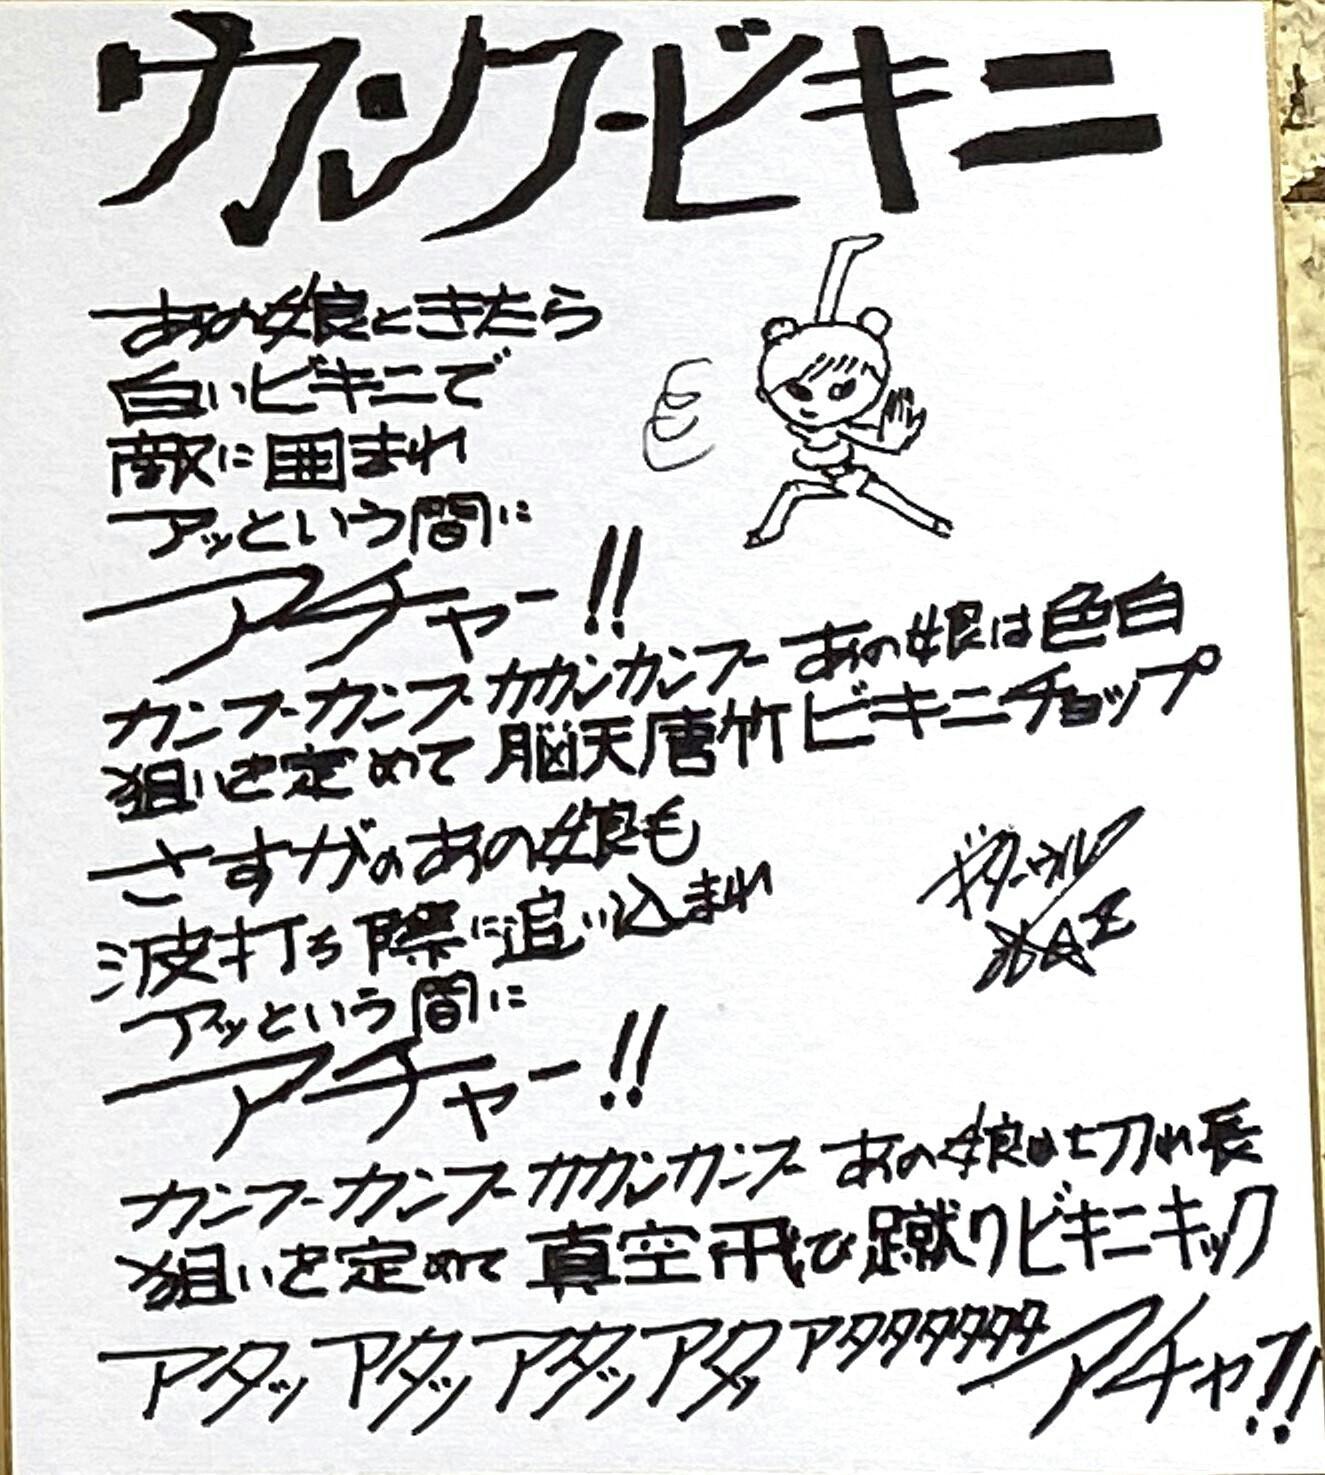 カンフービキニ
あの娘ときたら
白いビキニで
敵に囲まれ
アッという間に
アチャー!!
カンフーカンフーカカカンカンフー あの娘は色白
狙いを定めて脳天唐竹ビキニチョップ
さすがのあの娘も
波打ち際に追い込まれ
アッという間に
アチャー!!
カンフーカンフーカカカンカンフー あの娘は切れ長
狙いを定めて真空飛び蹴りビキニキック
アタッアタッアタッアタッアタタタタタタアチャ!!
ギターウルフ